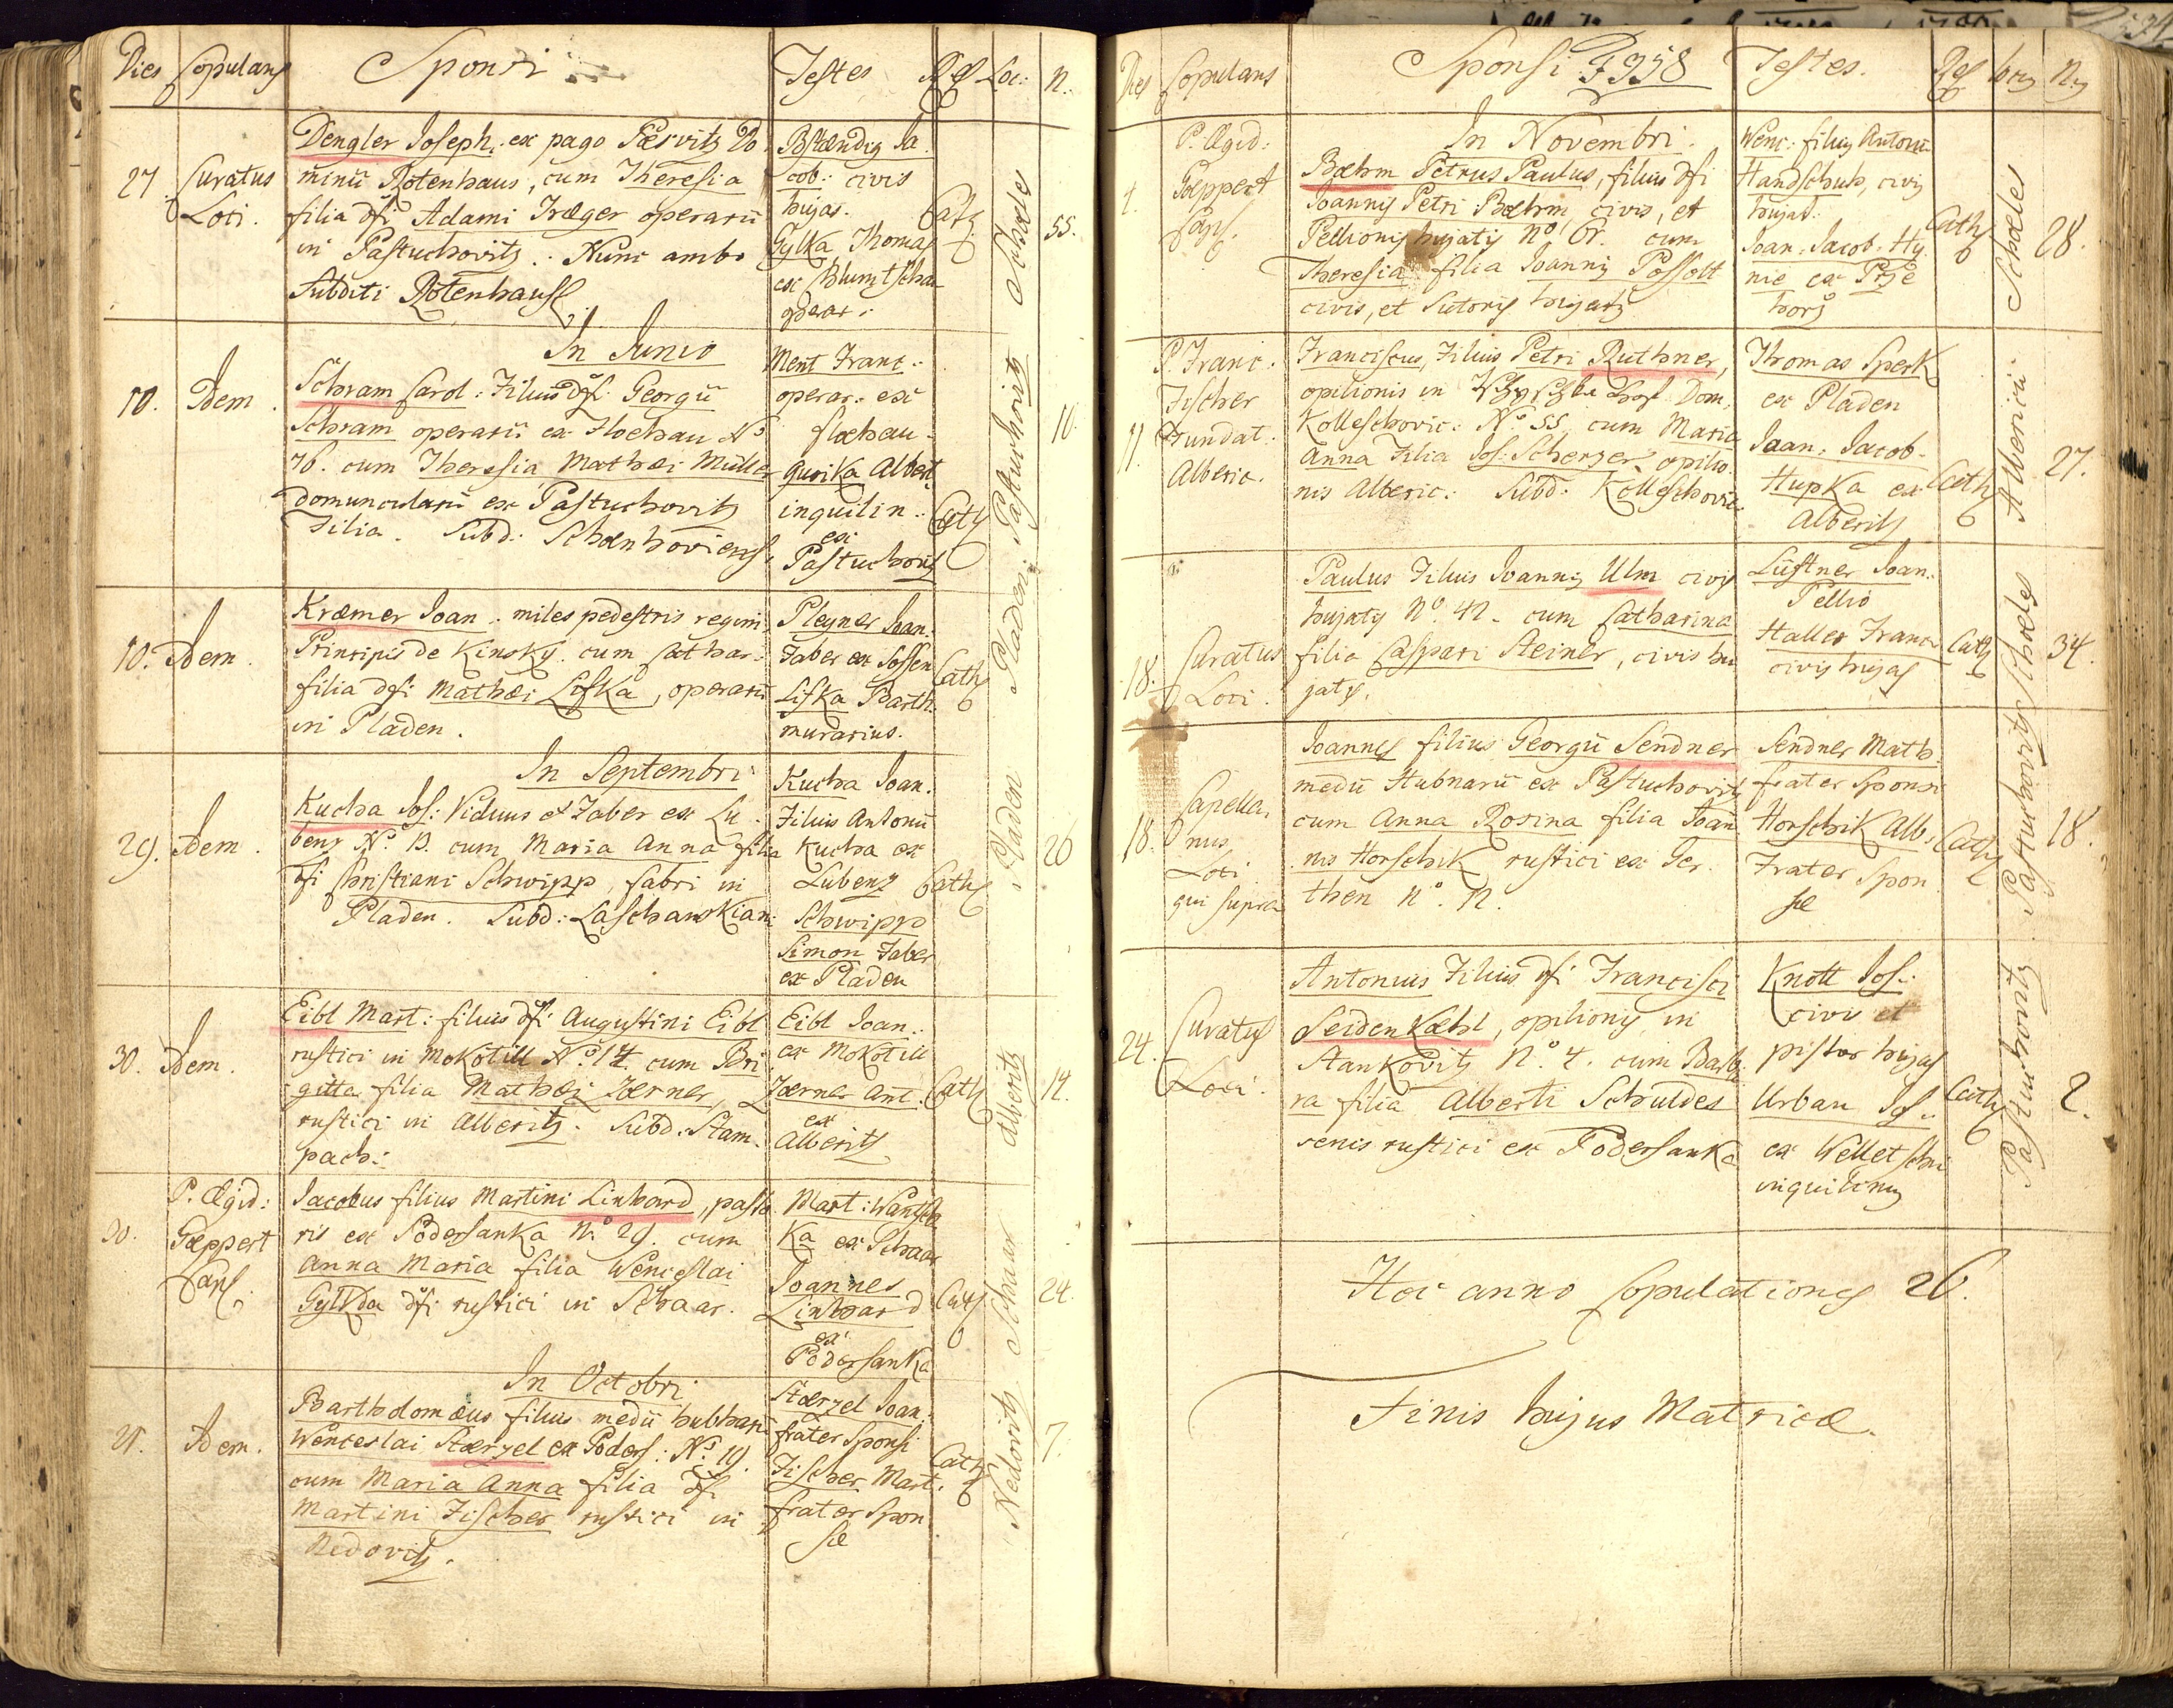 Dies Copulans Sponsi Testes Rel Loc: N.
27 Curatus Loci.
Dengler Joseph. ex pago Pærvitz Do
minii Rotenhaus, cum Theresia
filia dfi Adami Træger operarii
in Pastuchovitz. Nunc ambo
Subditi Rotenhaus
Bstændig Ja
cob: civis
hujas.
Gylka Thomas
ex Blumtschau
Cath
Scheles
55.
In Junio
10. Idem.
Schram Carol: Filius dfi Georgii
Schram operarii ex Flœhau No
76. cum Theresia Mathæi Müller
domuncularii ex Pastuchovitz
Filia. Subd: Schœnhoviens.
Ment Franc:
operar: ex
flœhau.
Gurika Albert
inquilin:
ex
Pastuchovitz
Cath
Pastuchovitz
16.
10. Idem.
Kræmer Joan. miles pedestris regim
Principis de Kinsky. cum Cathar:
filia dfi Mathæi Lifka, operarii
in Pladen.
Pleyner Joan:
Faber ex Sossen
Lifka Barth:
murarius.
Cath
Pladen.
In Septembri
29. Idem.
Kucha Jos: Viduus et Faber ex Lu
benz No. 13. cum Maria Anna filia
dfi Christiani Schwipp, fabri in
Pladen. Subd: Laschanskian:
Kucha Joan.
Filius Antonii
Kucha ex
Lubenz
Schwipp
Simon Faber
ex Pladen
Cath
Pladen
26
30. Idem.
Eibl Mart: filius dfi Augustini Eibl
rustici in Mokotill No 14. cum Bri
gitta filia Mathæi Zærner,
rustici in Alberitz. Subd: Stam
pach:
Eibl Joan:
ex Mokotill
Zærner Ant.
ex
Alberitz
Cath
Alberitz
14.
30. P. Ægid:
Gæppert
Capl.
Jacobus filius Martini Linhard, pasto
ris ex Podersanka No 29. cum
Anna Maria filia Wenceslai
Gylkda dfi rustici in Schaar.
Mart: Wantsch
Ka ex Schaar
Joannes
Linhard
ex
Podersanka
Cath
Schaar
24.
In Octobri
21. Idem.
Bartholomæus filius medii hubnarii
Wenceslai Stærzel ex Poders: No. 19.
cum Maria Anna filia dfi
Martini Fischer rustici in
Nedovitz.
Stærzel Joan:
frater Sponsi
Fischer Mart:
frater Spon
sæ
Cath
Nedovitz
7.
Dies Copulans Sponsi 1758 Testes. Rel Locus Nus
In Novembri.
1. P. Ægid:
Gæppert
Capl.
Bœhm Petrus Paulus, filius dfi
Joannis Petri Bœhm, civis, et
Pellionis hujatis No 61. cum
Theresia filia Joannis Possolt
civis, et Sutoris hujatis
Wenc: filius Antonii
Handschuh, civis
hujas.
Joan: Jacob: Hy
nie ex Prze
horz
Cath
Scheles
28.
11. P. Franc:
Fischer
Fundat:
Alberic.
Franciscus, Filius Petri Ruthner,
opilionis in Dom,
Kolleschovic: No 55. cum Maria
Anna Filia Jos: Scherzer opilio
nis Alberic: Subd: Kolleschovic:
Thomas Sperk
ex Pladen
Joan. Jacob.
Hupka ex
Alberitz
Cath
Alberici
27.
18. Curatus
Loci.
Paulus Filius Joannis Ulm civis
hujatis No. 42. cum Catharina
filia Caspari Steiner, civis hu
jatis.
Lüftner Joan:
Pellio
Haller Franc:
civis hujas
Cath
Scheles
34.
18. Capella,
nus
Loci
qui supra
Joannes filius Georgii Sendner
medii Hubnarii ex Pastuchovitz
cum Anna Rosina filia Joan
nis Horschik rustici ex Ger
then No. 12.
Sendner Math
frater Sponsi
Horschik Alb.
Frater Spon
sæ
Cath
Pastuchovitz
18.
24. Curatus
Loci.
Antonius Filius dfi Francisci
Seidenkæhl, opilionis in
Stankovitz No. 4. cum Barba
ra filia Alberti Schuldes
senis rustici ex Podersanka
Knott Jos:
civis et
pistor hujas
Urban Jos:
ex Welletschin
inquilinus
Cath
Pastuchovitz
2.
Hoc anno Copulationes 26.
Finis hujus Matricæ.